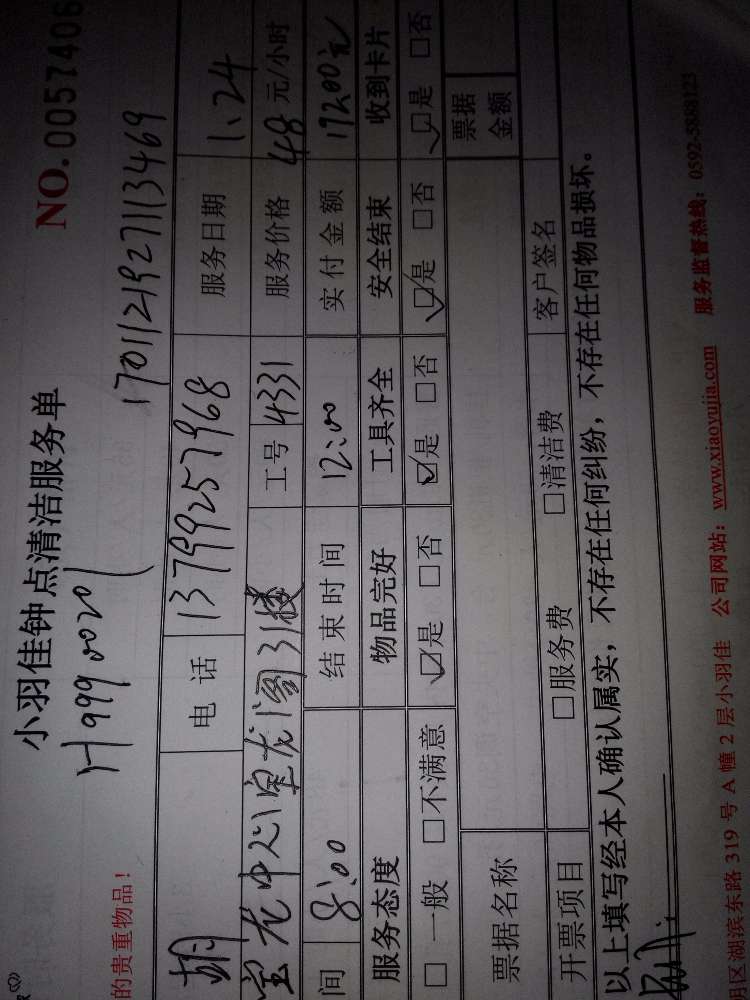 小羽佳钟点清洁服务单
NO.0057406
H9990020
170112192711346​9
的贵重物品！
胡 电话 13799257968 服务日期 1.24
宝龙中心宝龙阁31楼 工号 4331 服务价格 48 元/小时
间 8:00 结束时间 12:00 实付金额 19200元
服务态度 物品完好 工具齐全 安全结束 收到卡片
□一般 □不满意 ☑是 □否 ☑是 □否 ☑是 □否 ☑是 □否
票据名称 票据金额
开票项目 □服务费 □清洁费 客户签名
以上填写经本人确认属实，不存在任何纠纷，不存在任何物品损坏。
明区湖滨东路 319 号 A 幢 2 层小羽佳 公司网站：www.xiaoyujia.com 服务监督热线：0592-5888123